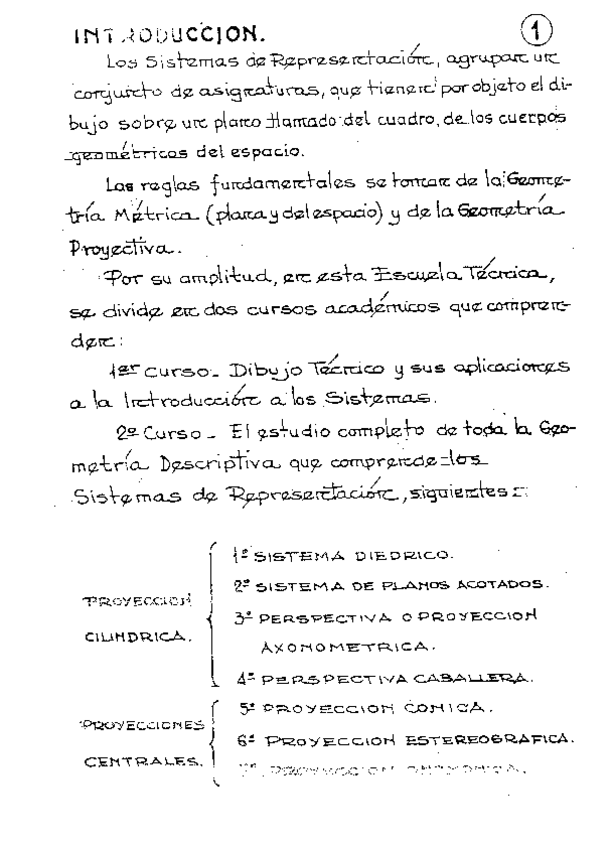 INTRODUCCION.
1
Los Sistemas de Representación, agrupan un
conjunto de asignaturas, que tienen por objeto el di-
bujo sobre un plano llamado del cuadro, de los cuerpos
geométricos del espacio.
Las reglas fundamentales se toman de la Geome-
tría Métrica (plana y del espacio) y de la Geometría
Proyectiva.
Por su amplitud, en esta Escuela Técnica,
se divide en dos cursos académicos que compren-
den:
1er Curso_ Dibujo Técnico y sus aplicaciones
a la Introducción a los Sistemas.
2º Curso_ El estudio completo de toda la Geo-
metría Descriptiva que comprende los
Sistemas de Representación, siguientes:
1º SISTEMA DIEDRICO.
2º SISTEMA DE PLANOS ACOTADOS.
PROYECCION
3º PERSPECTIVA O PROYECCION
CILINDRICA.
AXONOMETRICA.
4º PERSPECTIVA CABALLERA.
5º PROYECCION CONICA.
PROYECCIONES
6º PROYECCION ESTEREOGRAFICA.
CENTRALES.
7º PROYECCION